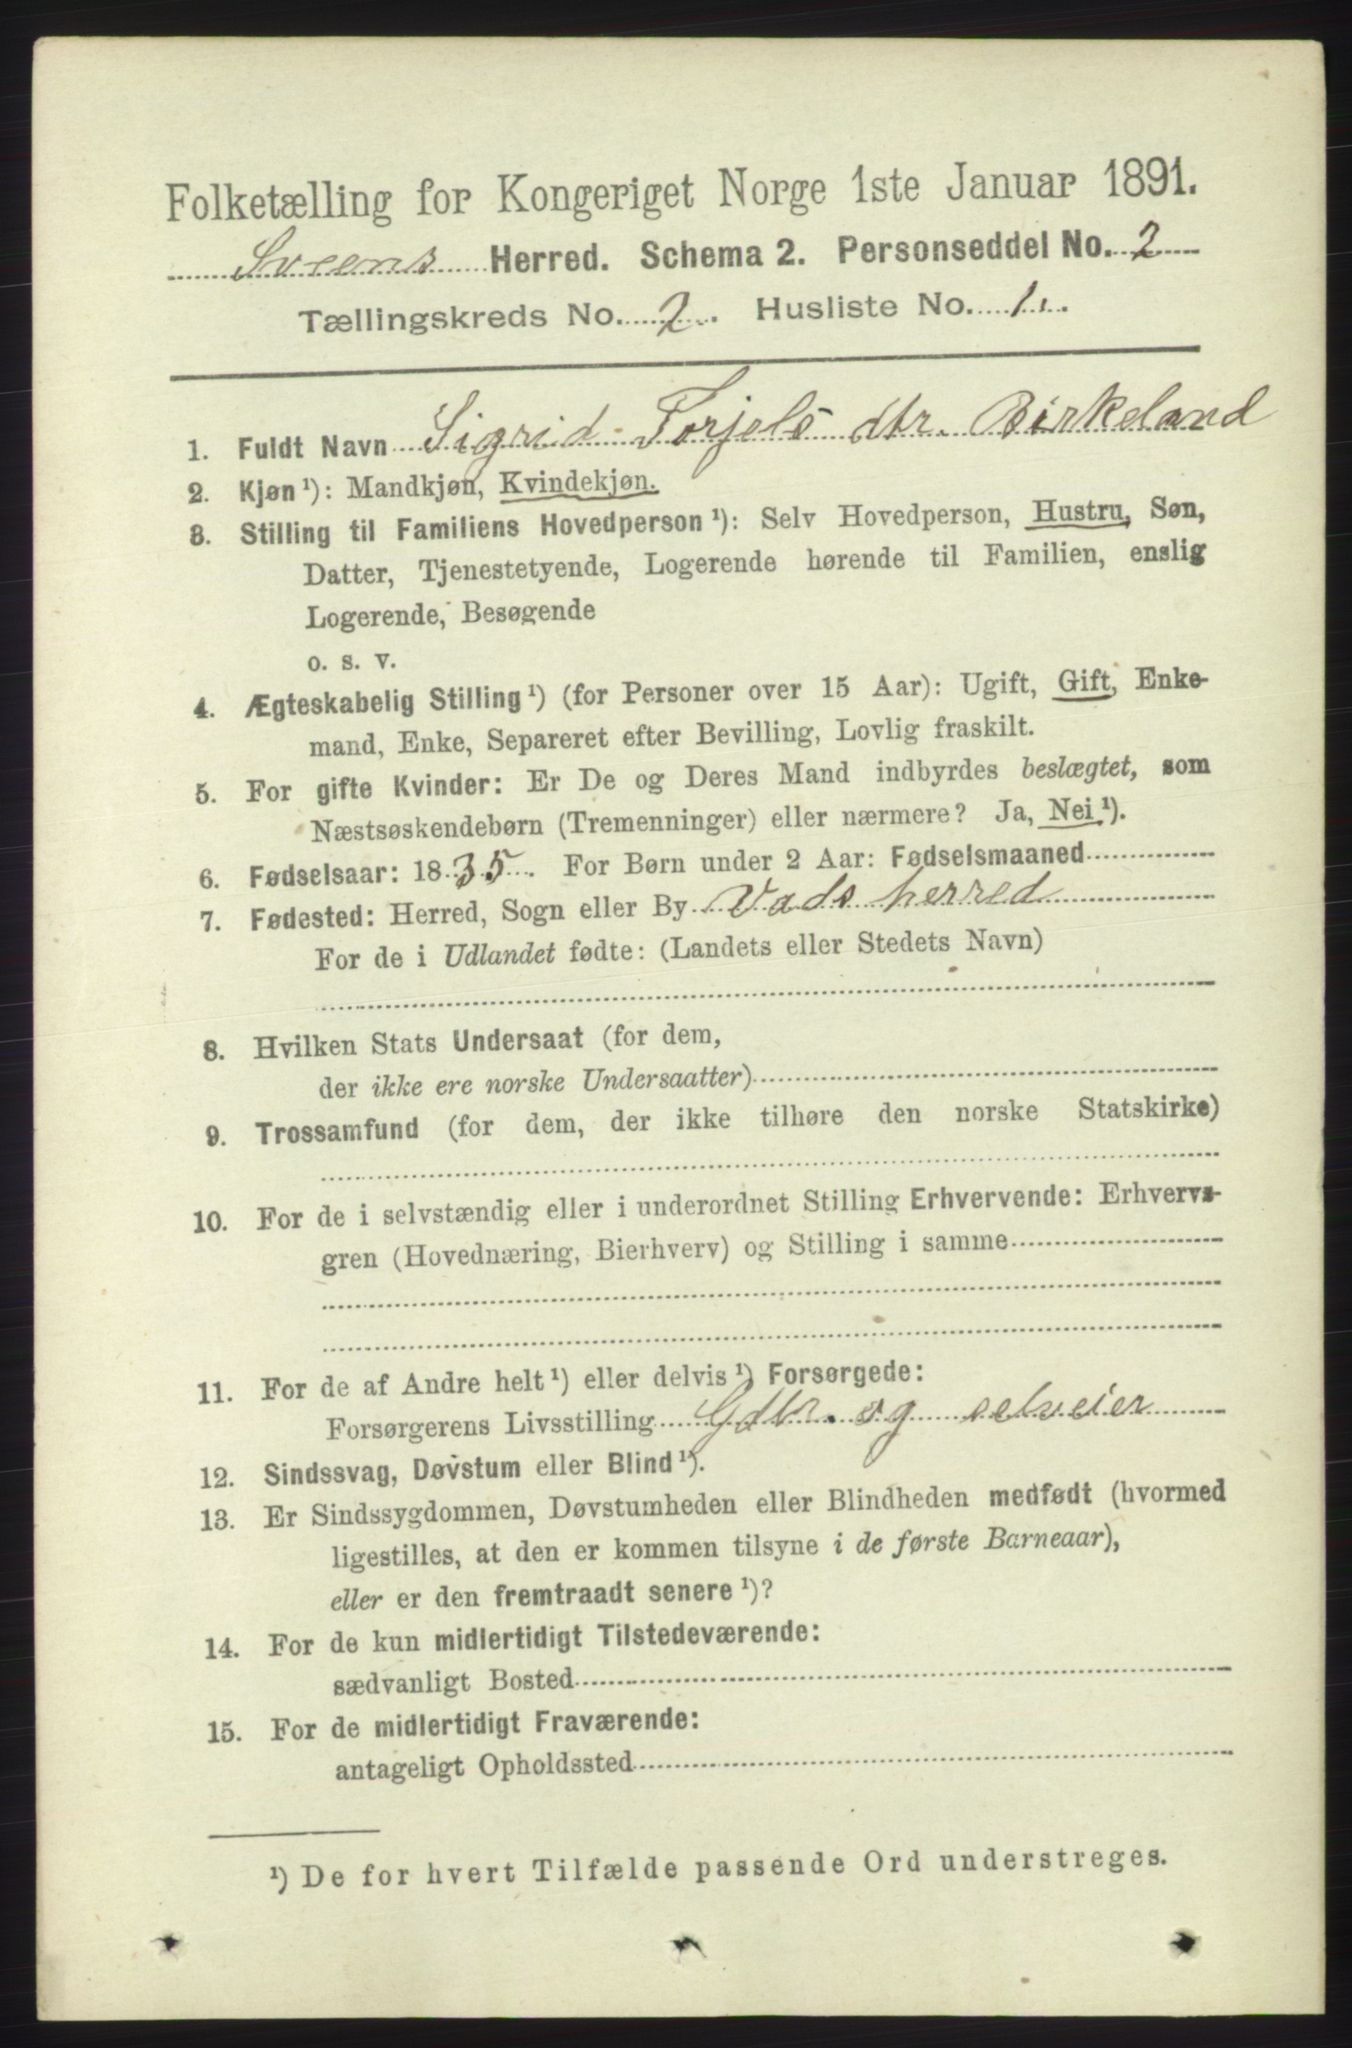 Folketælling for Kongeriget Norge 1ste Januar 1891.
Sveens Herred. Schema 2. Personseddel No. 2
Tællingskreds No. 2. Husliste No. 1.
1. Fuldt Navn Sigrid Torjels dtr. Birkeland
2. Kjøn¹): Mandkjøn, Kvindekjøn.
3. Stilling til Familiens Hovedperson¹): Selv Hovedperson, Hustru, Søn,
Datter, Tjenestetyende, Logerende hørende til Familien, enslig
Logerende, Besøgende
o. s. v.
4. Ægteskabelig Stilling¹) (for Personer over 15 Aar): Ugift, Gift, Enke-
mand, Enke, Separeret efter Bevilling, Lovlig fraskilt.
5. For gifte Kvinder: Er De og Deres Mand indbyrdes beslægtet, som
Næstsøskendebørn (Tremenninger) eller nærmere? Ja, Nei¹).
6. Fødselsaar: 1835. For Børn under 2 Aar: Fødselsmaaned
7. Fødested: Herred, Sogn eller By Vads herred
For de i Udlandet fødte: (Landets eller Stedets Navn)
8. Hvilken Stats Undersaat (for dem,
der ikke ere norske Undersaatter)
9. Trossamfund (for dem, der ikke tilhøre den norske Statskirke)
10. For de i selvstændig eller i underordnet Stilling Erhvervende: Erhvervs-
gren (Hovednæring, Bierhverv) og Stilling i samme
11. For de af Andre helt¹) eller delvis¹) Forsørgede:
Forsørgerens Livsstilling Gdbr. og selveier
12. Sindssvag, Døvstum eller Blind¹).
13. Er Sindssygdommen, Døvstumheden eller Blindheden medfødt (hvormed
ligestilles, at den er kommen tilsyne i de første Barneaar),
eller er den fremtraadt senere¹)?
14. For de kun midlertidigt Tilstedeværende:
sædvanligt Bosted
15. For de midlertidigt Fraværende:
antageligt Opholdssted
¹) De for hvert Tilfælde passende Ord understreges.